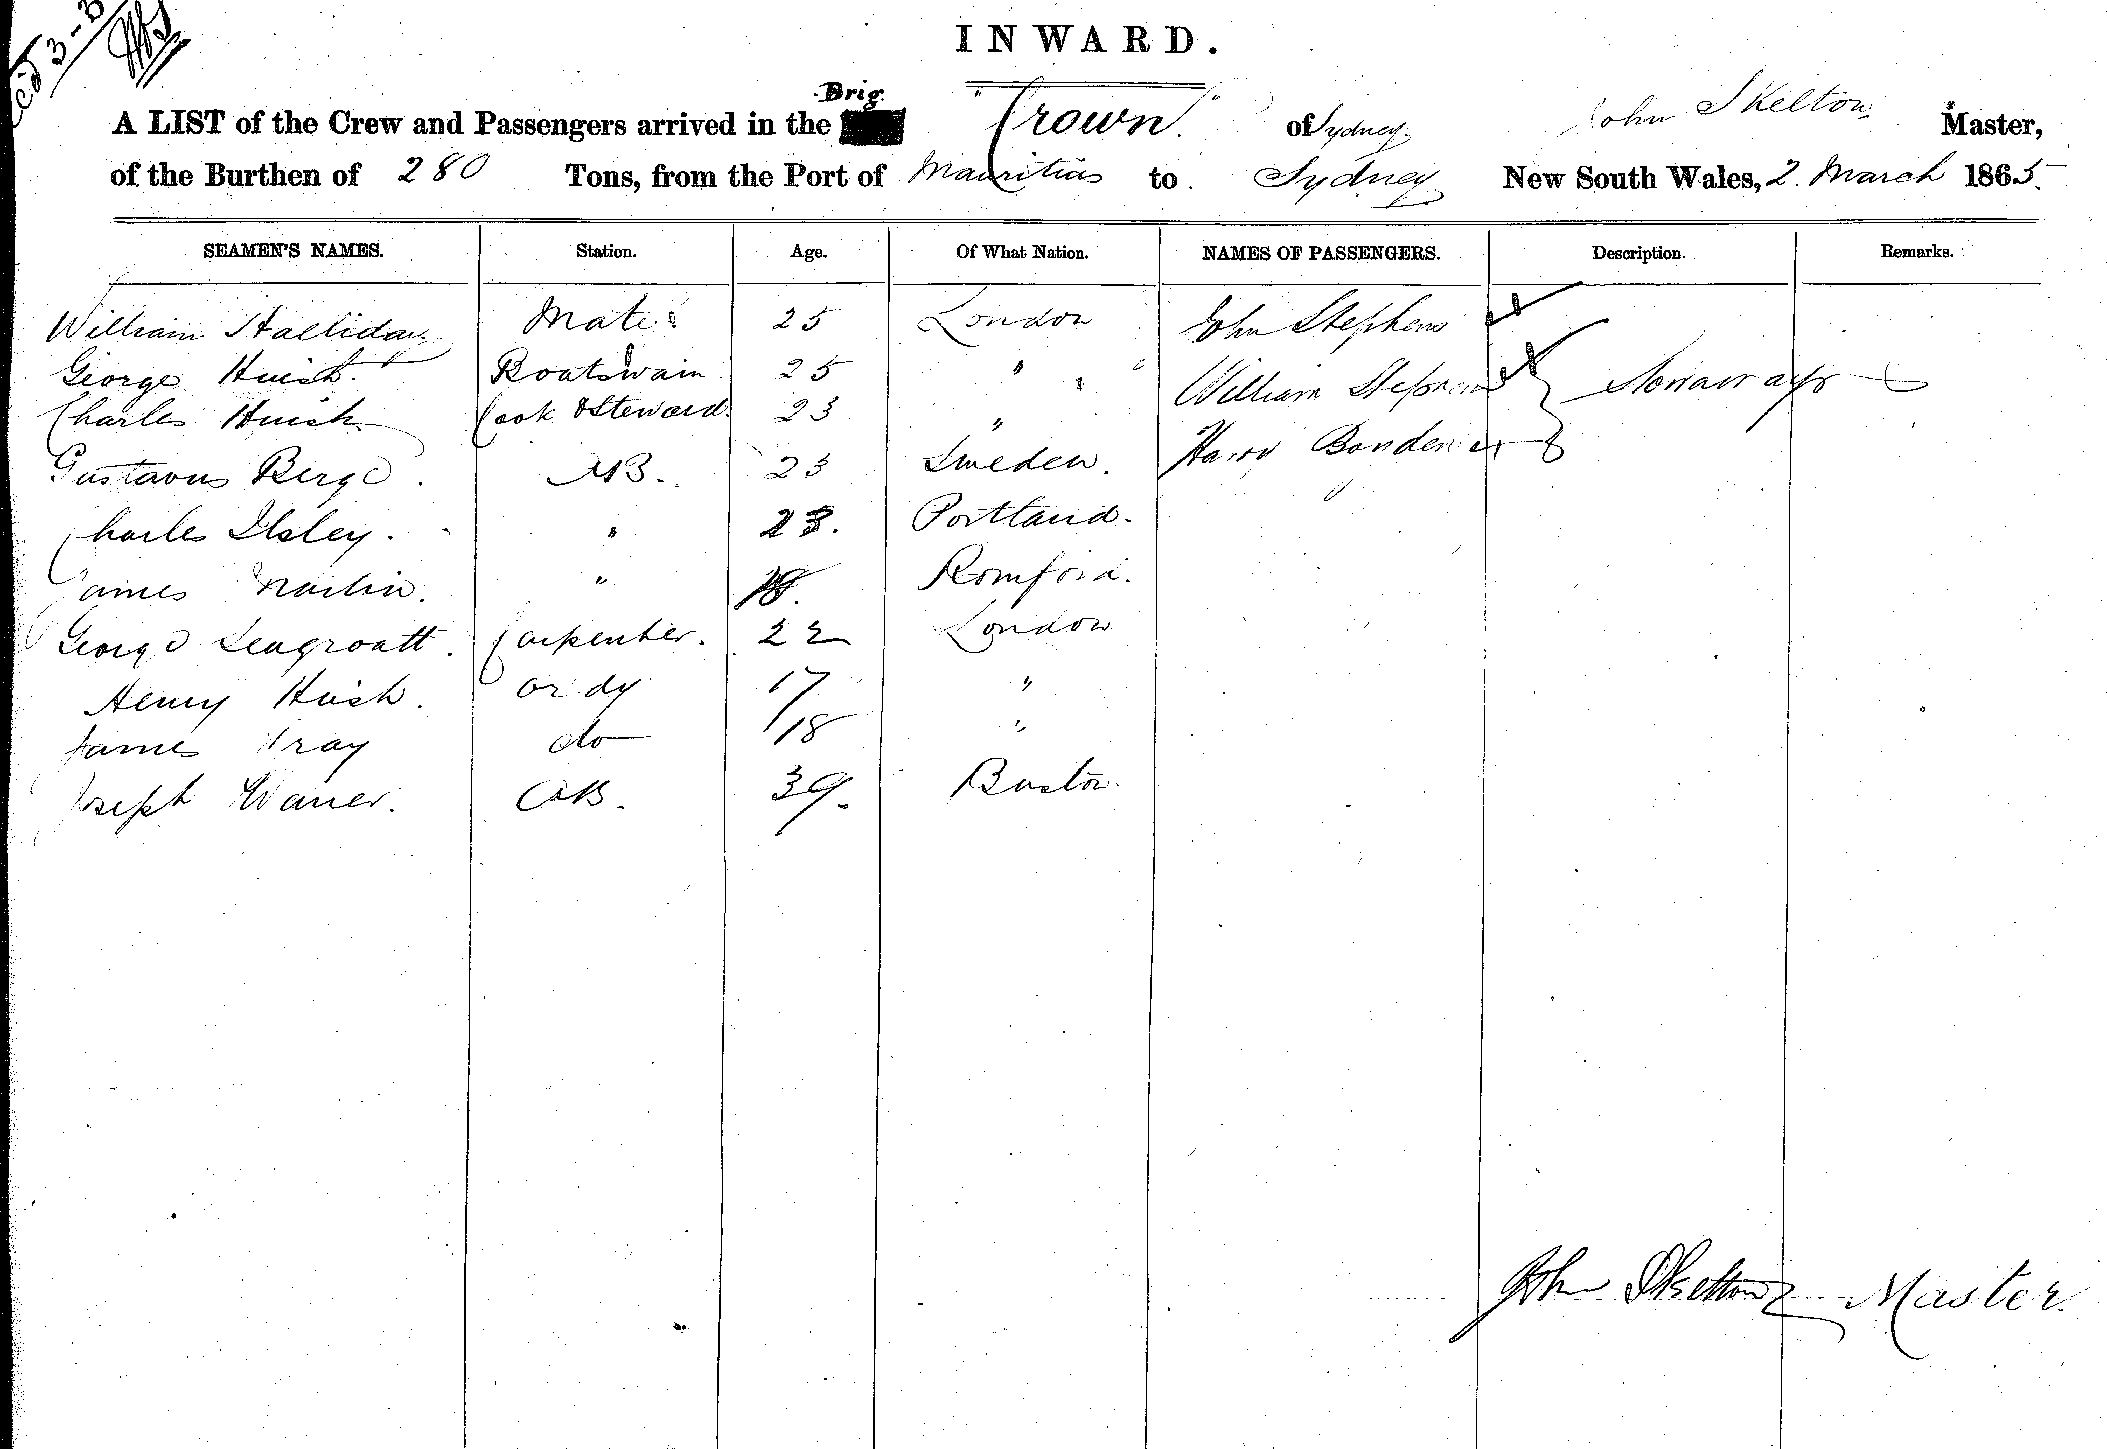 INWARD.
Brig
A LIST of the Crew and Passengers arrived in the "Crown" of Sydney John Skelton Master,
of the Burthen of 280 Tons, from the Port of Mauritius to Sydney New South Wales, 2 March 1865.
SEAMEN'S NAMES. Station. Age. Of What Nation. NAMES OF PASSENGERS. Description. Remarks.
William Halliday Mate 25 London John Stephens
George Huish Boatswain 25 " " " William Stephens Stowaways
Charles Huish Cook & Steward 23 " Harry
Gustavus Berge AB. 23 Sweden.
Charles Ilsley. " 23. Portland.
James Martin. " Romford.
George Seagroatt. Carpenter. 22 London
Henry Huish. ordy 17 "
James do 18 "
Joseph AB. 39. Boston.
John Skelton Master